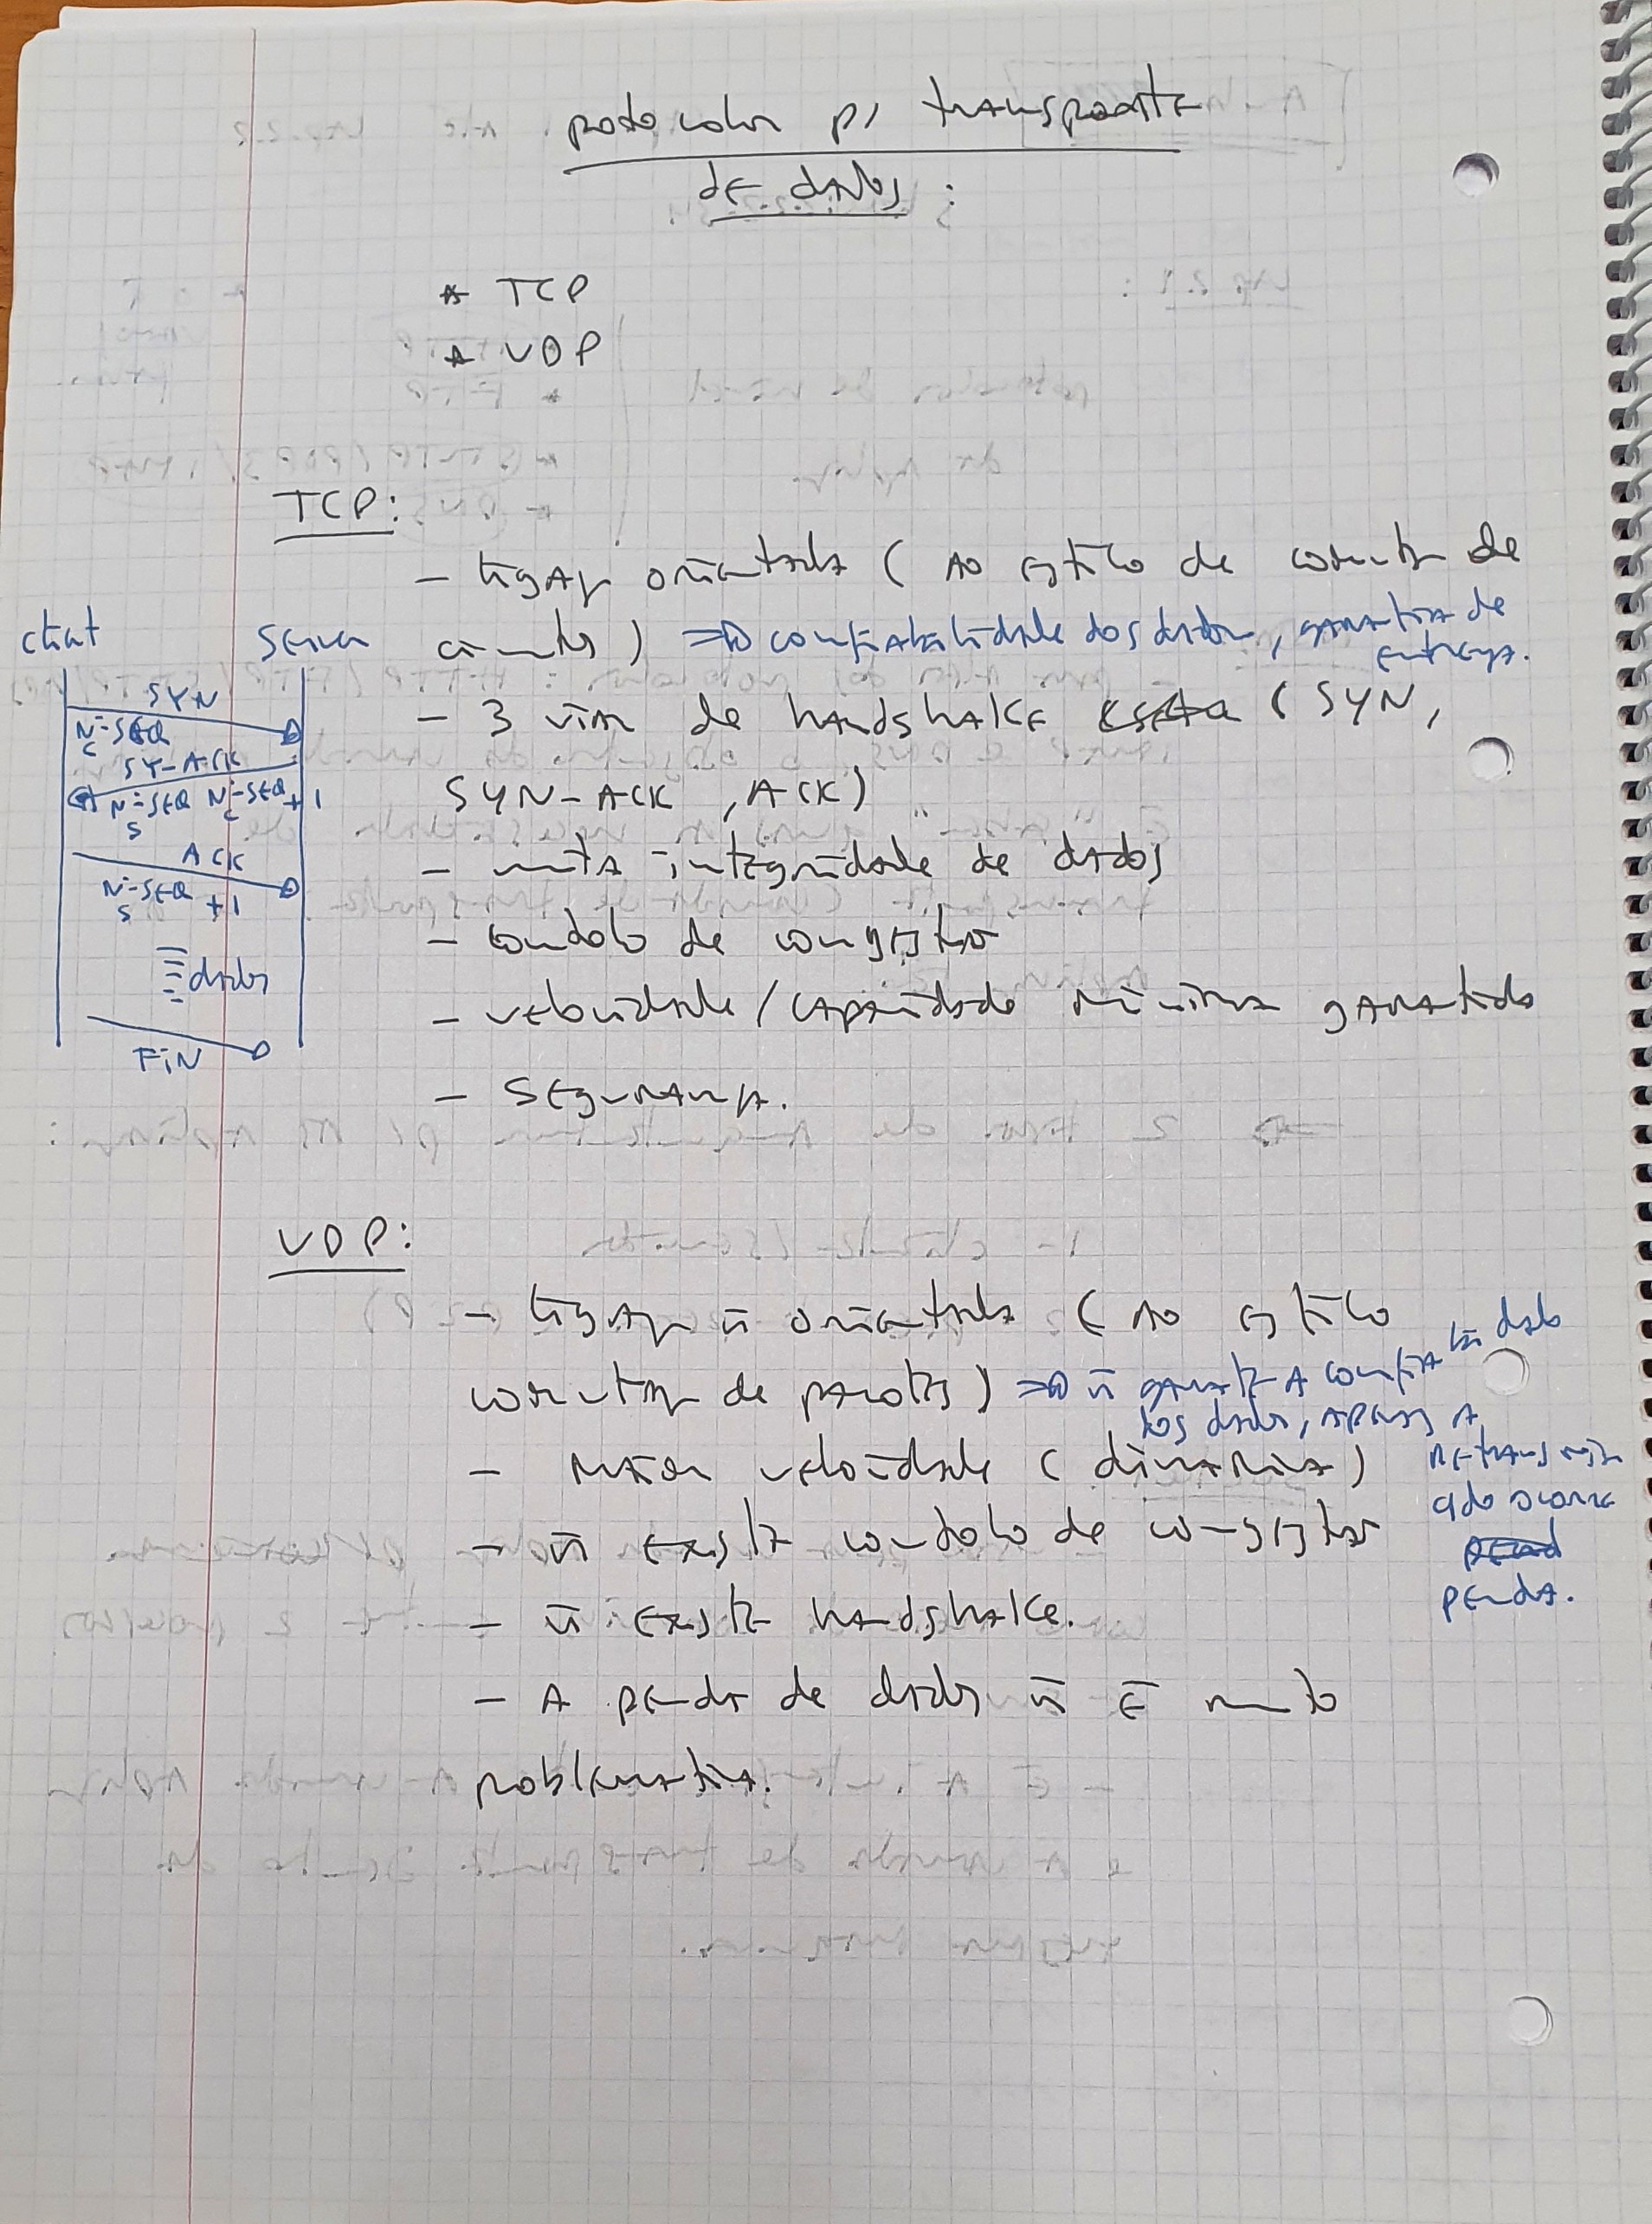 protocolos p/ transporte
de dados :
* TCP
* UDP
TCP:
- ligação orientada ( ao estilo de comutação de
circuitos ) => confiabilidade dos dados, garantia de
entrega.
- 3 vias de handshake (SYN,
SYN-ACK, ACK)
- muita integridade de dados
- controlo de congestão
- velocidade/capacidade mínima garantida
- segurança.
client server
SYN
Nº SEQ
C
SY-ACK
Nº SEQ Nº SEQ + 1
S C
ACK
Nº SEQ + 1
S
dados
FIN
UDP:
- ligação ñ orientada ( ao estilo
comutação de pacotes ) => ñ garante a confiabilidade
dos dados, apenas a
retransmissão
qdo ocorre
perda.
- maior velocidade ( dinâmica )
- ñ existe controlo de congestão
- ñ existe handshake.
- A perda de dados ñ é muito
problemática.